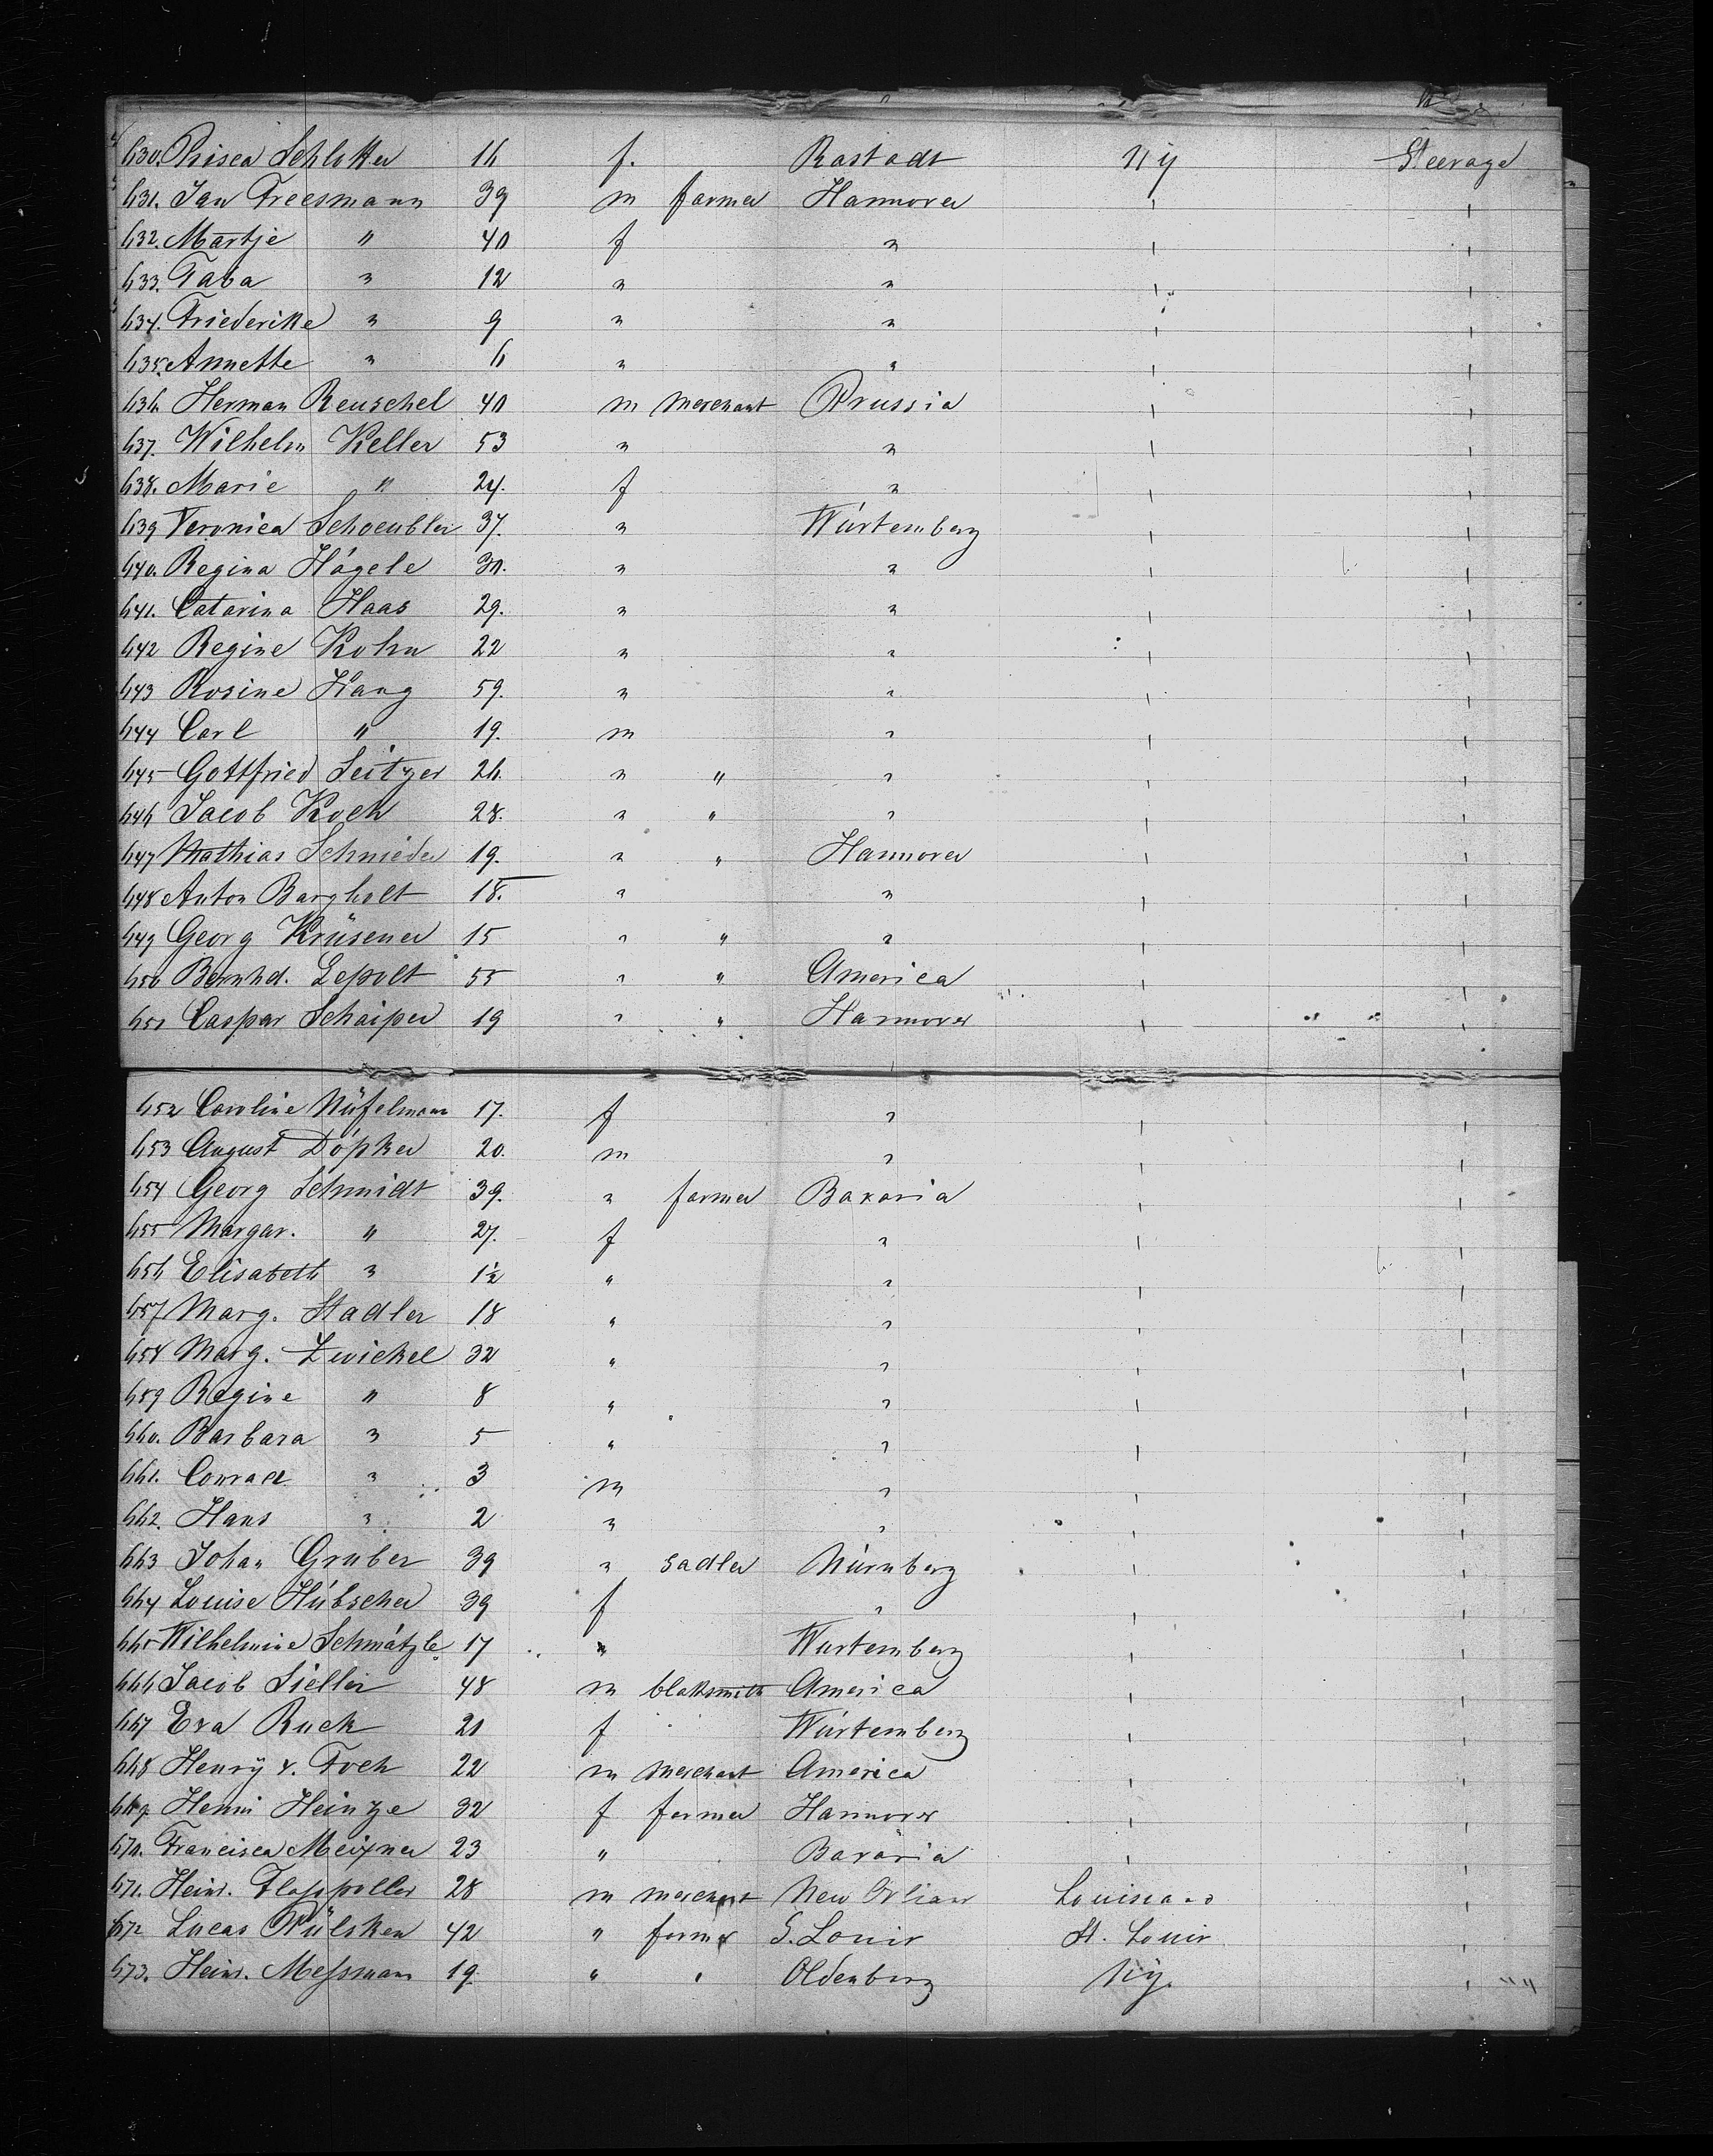 630. Prisca Schlotter 16 f. Rastadt NY Steerage
631. Jan Freesmann 39 m farmer Hannover ' '
632. Martje " 40 f " ' '
633. Taba " 12 " " ' '
634. Friederike " 9 " " ' '
635. Annette " 6 " " ' '
636. Herman Reuschel 40 m merchant Prussia ' '
637. Wilhelm Keller 53 " " ' '
638. Marie " 24. f " ' '
639 Veronica Schoeubler 37. " Würtemberg ' '
640. Regina Hágele 30. " " ' '
641. Catarina Haas 29. " " ' '
642 Regine Kohn 22 " " ' '
643 Rosine Haug 59. " " ' '
644 Carl " 19. m " ' '
645 Gottfried Seitzer 26. " " " ' '
646 Jacob Koch 28. " " " ' '
647 Mathias Schnieder 19. " " Hannover ' '
648 Anton Bargholt 18. " " ' '
649 Georg Krüsener 15 " " " ' '
650 Bernhd. Lepolt 55 " " America ' '
651 Caspar Schaiper 19 " " Hannover ' '
652 Caroline Nüfelmann 17. f " ' '
653 August Döpker 20. m " ' '
654 Georg Schmidt 39. " farmer Bavaria ' '
655 Margar. " 27. f " ' '
656 Elisabeth " 1½ " " ' '
657 Marg. Stadler 18 " " ' '
658 Marg. Zwickel 32 " " ' '
659 Regine " 8 " " ' '
660. Barbara " 5 " " ' '
661. Conrad " 3 m " ' '
662. Hans " 2 " " ' '
663 Johan Gruber 39 " sadler Nürnberg ' '
664 Louise Hübscher 39 f " ' '
665 Wilhelmine Schmätzle 17 " Wurtemberg ' '
666 Jacob Sieller 48 m blaksmith America ' '
667 Eva Ruck 21 f Würtemberg ' '
668 Henry v. Foch 22 m merchant America ' '
669. Henni Heinze 32 f farmer Hannover ' '
670. Francisca Meixner 23 " Bavaria ' '
671. Heinr. Flaspoller 28 m merchant New Orlians Louisiana '
672 Lucas Pülsken 42 " farmer S. Louis St. Louis '
673. Heinr. Meßmann 19. " " Oldenburg NY. '